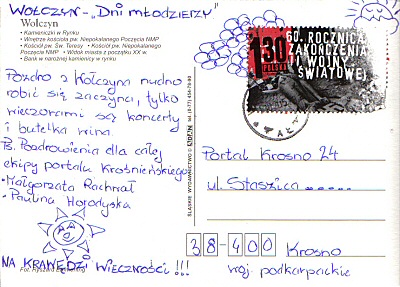 WOŁCZYN - „Dni młodzieży"
Wołczyn
• Kamieniczki w Rynku
• Wnętrze kościoła pw. Niepokalanego Poczęcia NMP
• Kościół pw. Św. Teresy • Kościół pw. Niepokalanego
Poczęcia NMP • Widok miasta z początku XX w.
• Bank w narożnej kamienicy w rynku
Pozdro z Wołczyna nudno
robić się zaczyna, tylko
wieczorami są koncerty
i butelka wina.
Ps. Pozdrowienia dla całej
ekipy portalu Krośnieńskiego
• Małgorzata Rachwał
• Paulina
NA KRAWĘDZI WIECZNOŚCI !!!
Fot. Ryszard
ŚLĄSKIE WYDAWNICTWO
1,30
POLSKA
60. ROCZNICA
ZAKOŃCZENIA
II WOJNY
ŚWIATOWEJ
Portal Krosno 24
ul. Staszica
38-400 Krosno
woj. podkarpackie